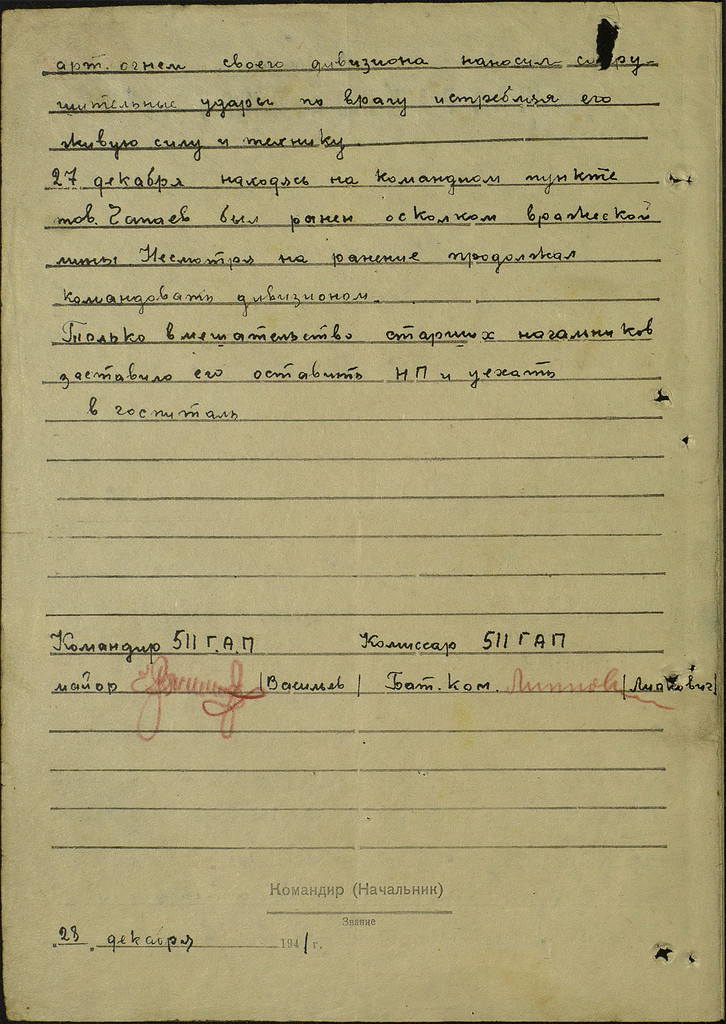 арт. огнем своего дивизиона наносил сокру-
шительные удары по врагу истребляя его
живую силу и технику.
27 декабря находясь на командном пункте
тов. Чапаев был ранен осколком вражеской
мины Несмотря на ранение продолжал
командовать дивизионом.
Только вмешательство старших начальников
заставило его оставить НП и уехать
в госпиталь
Командир 511 Г.А.П Комиссар 511 ГАП
майор |Васильев| Бат. ком. |Липкович|
Командир (Начальник)
Звание
„28„ декабря 1941 г.